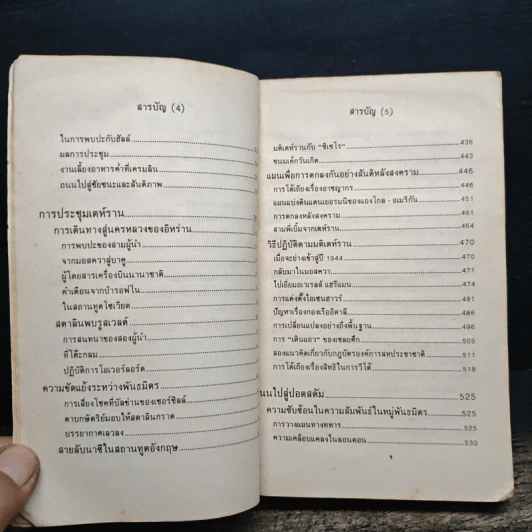 สารบัญ (4)
ในการพบปะกับฮัลล์
ผลการประชุม
งานเลี้ยงอาหารค่ำที่เครมลิน
ถนนไปสู่ชัยชนะและสันติภาพ
การประชุมเตหะราน
การเดินทางสู่นครหลวงของอิหร่าน
การพบปะของสามผู้นำ
จากมอสควาสู่บากู
ผู้โดยสารเครื่องบินนานาชาติ
คำเตือนจากป่ารอฟโน
ในสถานทูตโซเวียต
สตาลินพบรูสเวลต์
การสนทนาของสองผู้นำ
ที่โต๊ะกลม
ปฏิบัติการโอเวอร์ลอร์ด
ความขัดแย้งระหว่างพันธมิตร
การเสี่ยงโชคที่บัลข่านของเชอร์ชิลล์
ดาบกษัตริย์มอบให้สตาลินกราด
บรรยากาศเลวลง
สายลับนาซีในสถานทูตอังกฤษ
สารบัญ (5)
มติเตห์รานกับ "ซิเซโร" 436
ขนมเค้กวันเกิด 443
แผนเพื่อการตกลงกันอย่างสันติหลังสงคราม 446
การโต้เถียงเรื่องอาชญากร 446
แผนแบ่งดินแดนเยอรมนีของแองโกล - อเมริกัน 451
การตกลงหลังสงคราม 461
สามพี่เบิ้มจากเตห์ราน 464
วิธีปฏิบัติตามมติเตห์ราน 470
เมื่อจะย่างเข้าสู่ปี 1944 470
กลับมาในมอสควา 471
ไปเยี่ยมอเวเรลล์ แฮรีแมน 474
การแต่งตั้งไอเซนฮาวร์ 481
ปัญหาเรื่องกองเรืออิตาลี 486
การเปลี่ยนแปลงอย่างถึงพื้นฐาน 496
การ "เดินแถว" ของเชลยศึก 505
สองแนวคิดเกี่ยวกับกฎบัตรองค์การสหประชาชาติ 511
การโต้เถียงเรื่องสิทธิในการวีโต้ 518
นนไปสู่ปอตสดัม 525
ความซับซ้อนในความสัมพันธ์ในหมู่พันธมิตร 525
การวางแผนทางทหาร 525
ความเคลือบแคลงในลอนดอน 530